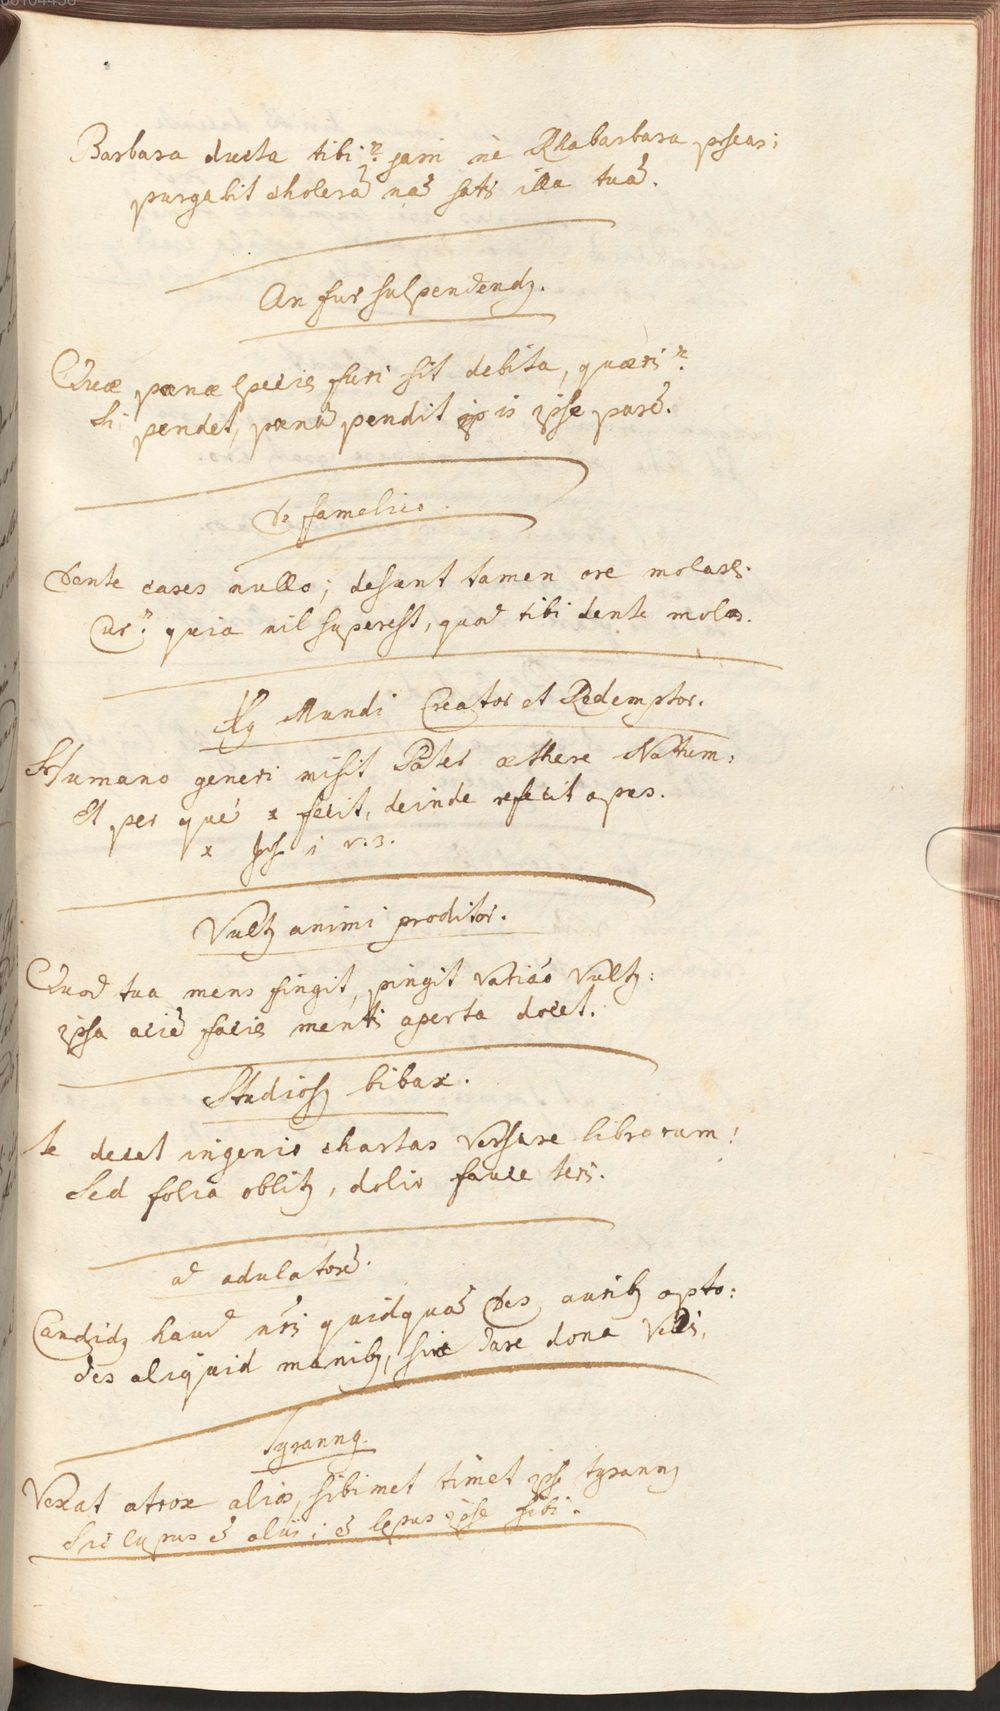 Barbara ducta tibi? jam nè Rhabarbara pscas;
purgabit cholerā nā satis illa tuā.
An fur suspendendꝫ.
Quæ pœnæ species furi sit debita, quæris?
Si pendet, pœnā pendit is ipse parē.
De famelico.
Dente cares nullo; desunt tamen ore molares.
Cur? quia nil superest, quod tibi dente molas.
Xꝫ Mundi Creator et Redemptor.
Humano generi misit Pater æthere Natum:
Et per quē x fecit, deinde refecit opes.
x 1 v. 3.
Vultꝫ animi proditor.
Quod tua mens fingit, pingit vultꝫ:
ipsa aciē facies mentis aperta docet.
Studiosꝫ bibax.
te decet ingenio chartas versare librorum!
Sed folia oblitꝫ, dolio fauce teris.
ad adulatorē.
Candidꝫ haud nr̄is quidquā des auribꝫ opto:
des aliquid manibꝫ, sive dare dona velis.
Tyrannꝫ.
Vexat atrox alios, sibimet timet ipse tyrannꝫ
Sic lupus ē aliis; ē lepus ipse sibi.